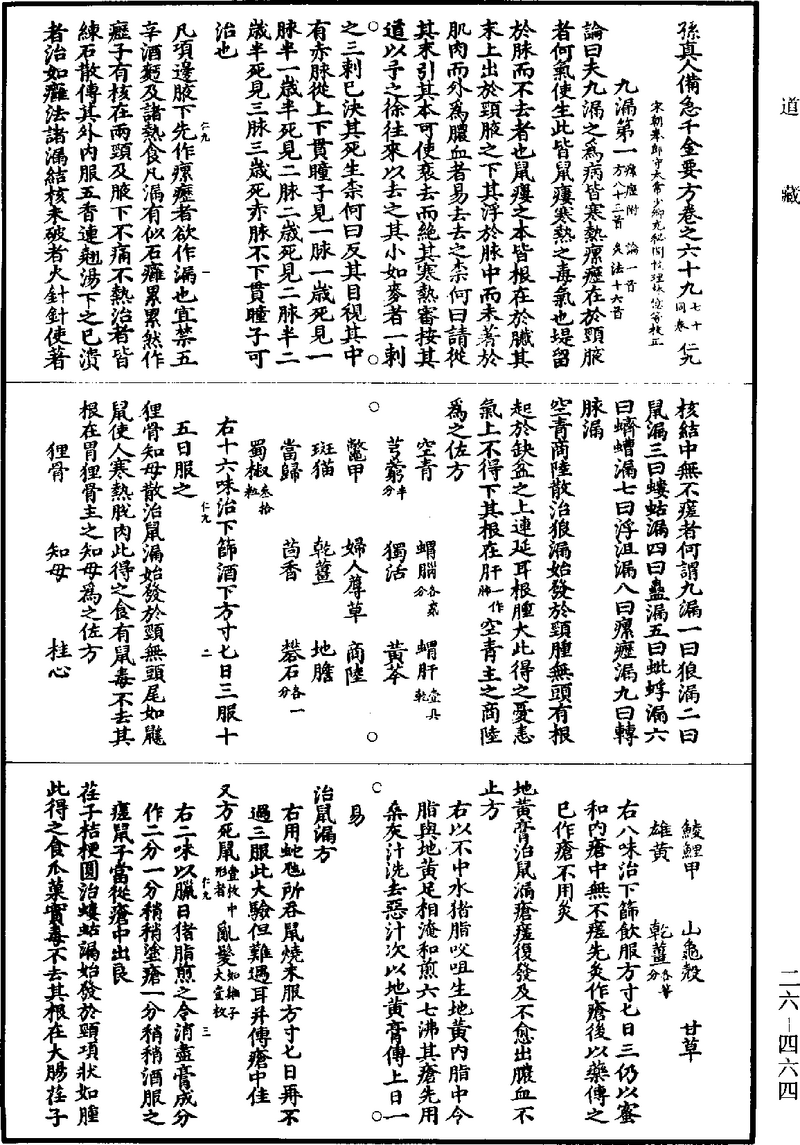 道藏
孫真人備急千金要方卷之六十九 七十同卷 仁九
宋朝奉郎守太常少卿充秘閣校理林億等校正
九漏第一 瘰癧附 論一首 方八十三首 灸法十六首
論曰夫九漏之為病皆寒熱瘰癧在於頸腋
者何氣使生此皆鼠瘻寒熱之毒氣也堤留
於脉而不去者也鼠瘻之本皆根在於臟其
末上出於頸腋之下其浮於脉中而未著於
肌肉而外為膿血者易去去之柰何曰請從
其末引其本可使衰去而絕其寒熱審按其
道以予之徐往來以去之其小如麥者一刺
之三刺已決其死生柰何曰反其目視其中
有赤脉從上下貫瞳子見一脉一歲死見一
脉半一歲半死見二脉二歲死見二脉半二
歲半死見三脉三歲死赤脉不下貫瞳子可
治也
仁九 一
凡項邊腋下先作瘰癧者欲作漏也宜禁五
辛酒麵及諸熱食凡漏有似石癰累累然作
癧子有核在兩頸及腋下不痛不熱治者皆
練石散傅其外內服五香連翹湯下之已潰
者治如癰法諸漏結核未破者火針針使著
核結中無不瘥者何謂九漏一曰狼漏二曰
鼠漏三曰螻蛄漏四曰蠭漏五曰蚍蜉漏六
曰蠐螬漏七曰浮沮漏八曰瘰癧漏九曰轉
脉漏
空青商陸散治狼漏始發於頸腫無頭有根
起於缺盆之上連延耳根腫大此得之憂恚
氣上不得下其根在肝 一作肺 空青主之商陸
為之佐方
空青 蝟腦各貳分 蝟肝壹具乾
芎藭半分 獨活 黃芩
鱉甲 婦人蓐草 商陸
斑猫 乾薑 地膽
當歸 茴香 礬石各一分
蜀椒叁拾粒
右十六味治下篩酒下方寸匕日三服十
五日服之
仁九 二
狸骨知母散治鼠漏始發於頸無頭尾如鼷
鼠使人寒熱脫肉此得之食有鼠毒不去其
根在胃狸骨主之知母為之佐方
狸骨 知母 桂心
鯪鯉甲 山龜殼 甘草
雄黃 乾薑各等分
右八味治下篩飲服方寸匕日三仍以蜜
和內瘡中無不瘥先灸作瘡後以藥傅之
已作瘡不用灸
地黃膏治鼠漏瘡瘥復發及不愈出膿血不
止方
右以不中水猪脂㕮咀生地黃內脂中令
脂與地黃足相淹和煎六七沸其瘡先用
桑灰汁洗去惡汁次以地黃膏傅上日一
易
治鼠漏方
右用蛇虺所吞鼠燒末服方寸匕日再不
過三服此大驗但難遇耳并傅瘡中佳
又方死鼠壹枚中形者 亂髮如雞子大壹枚
右二味以臘日猪脂煎之令消盡膏成分
作二分一分稍稍塗瘡一分稍稍酒服之
瘥鼠子當從瘡中出良
仁九 三
荏子桔梗圓治螻蛄漏始發於頸項狀如腫
此得之食瓜菓實毒不去其根在大腸荏子
二六—四六四